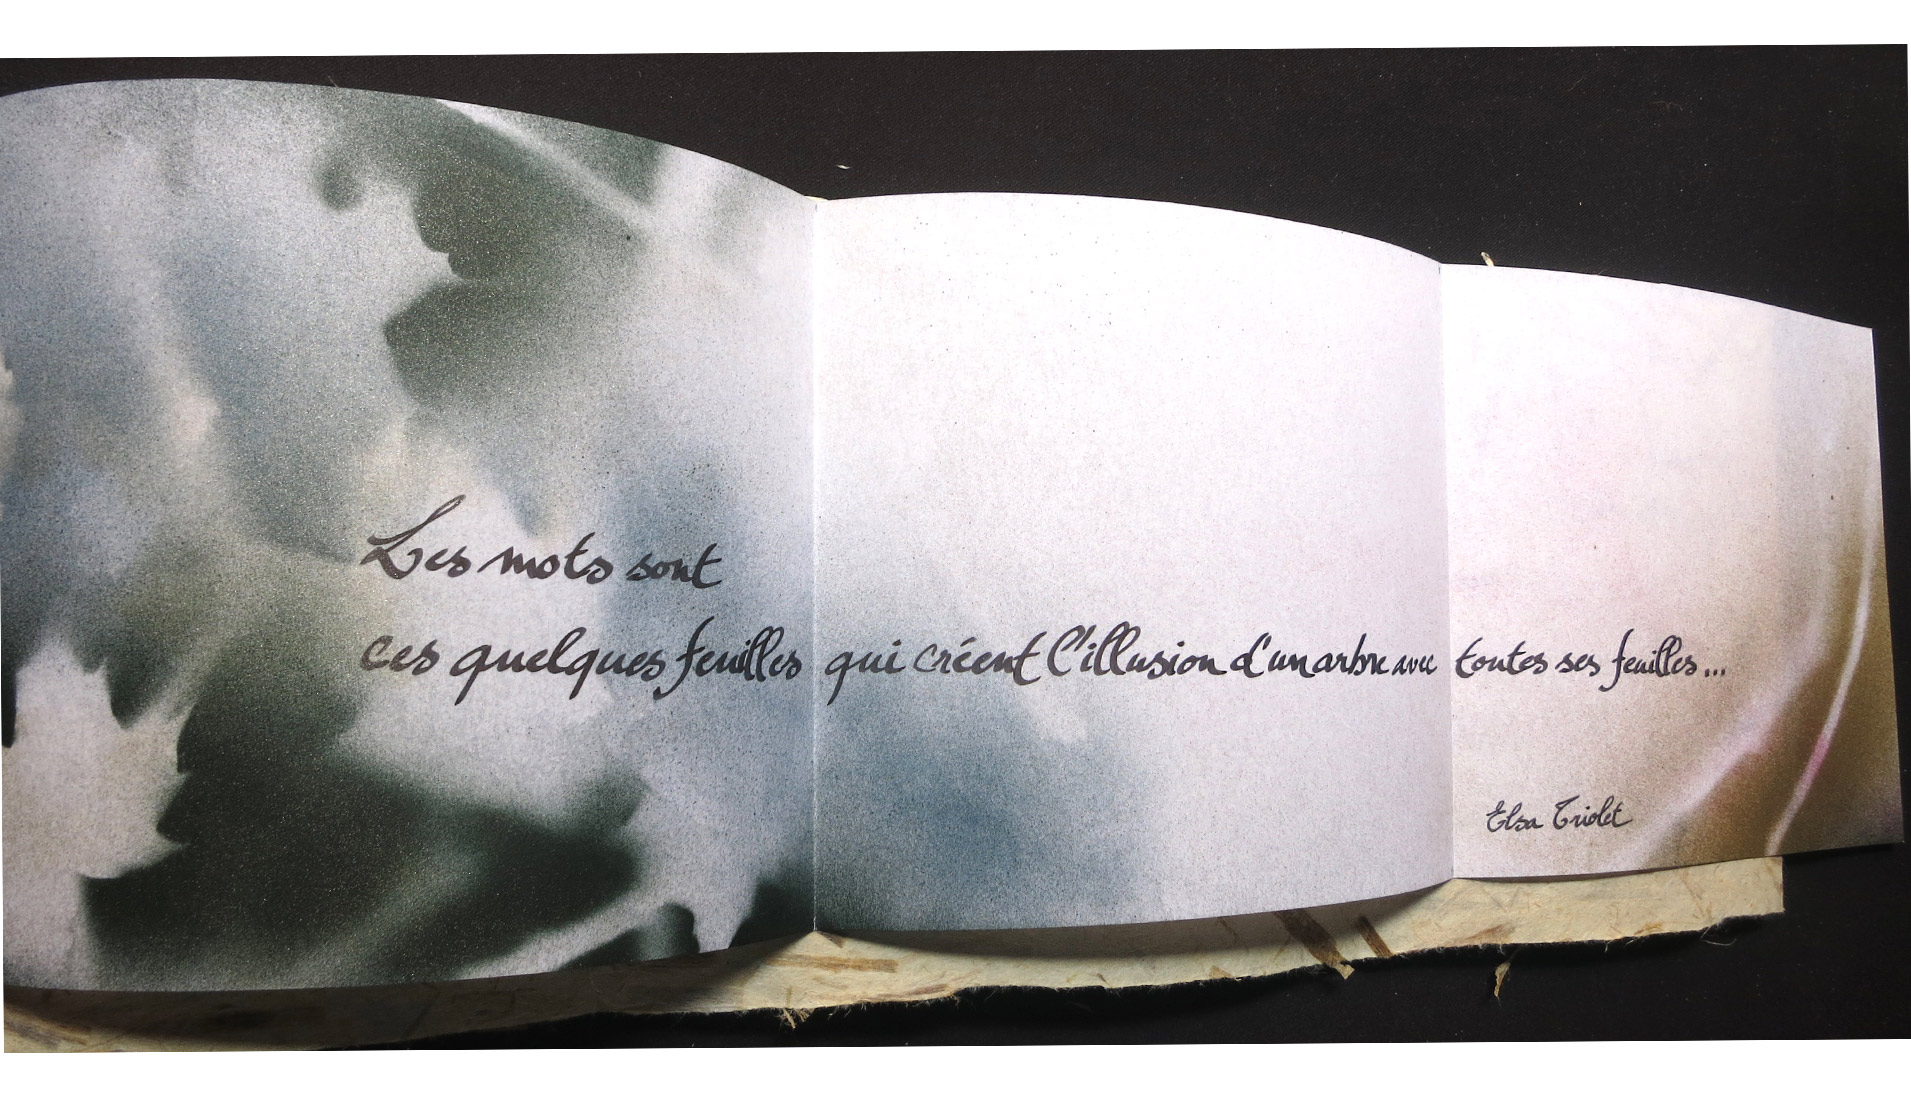 Les mots sont
ces quelques feuilles qui créent l'illusion d'un arbre avec toutes ses feuilles...
Elsa Triolet